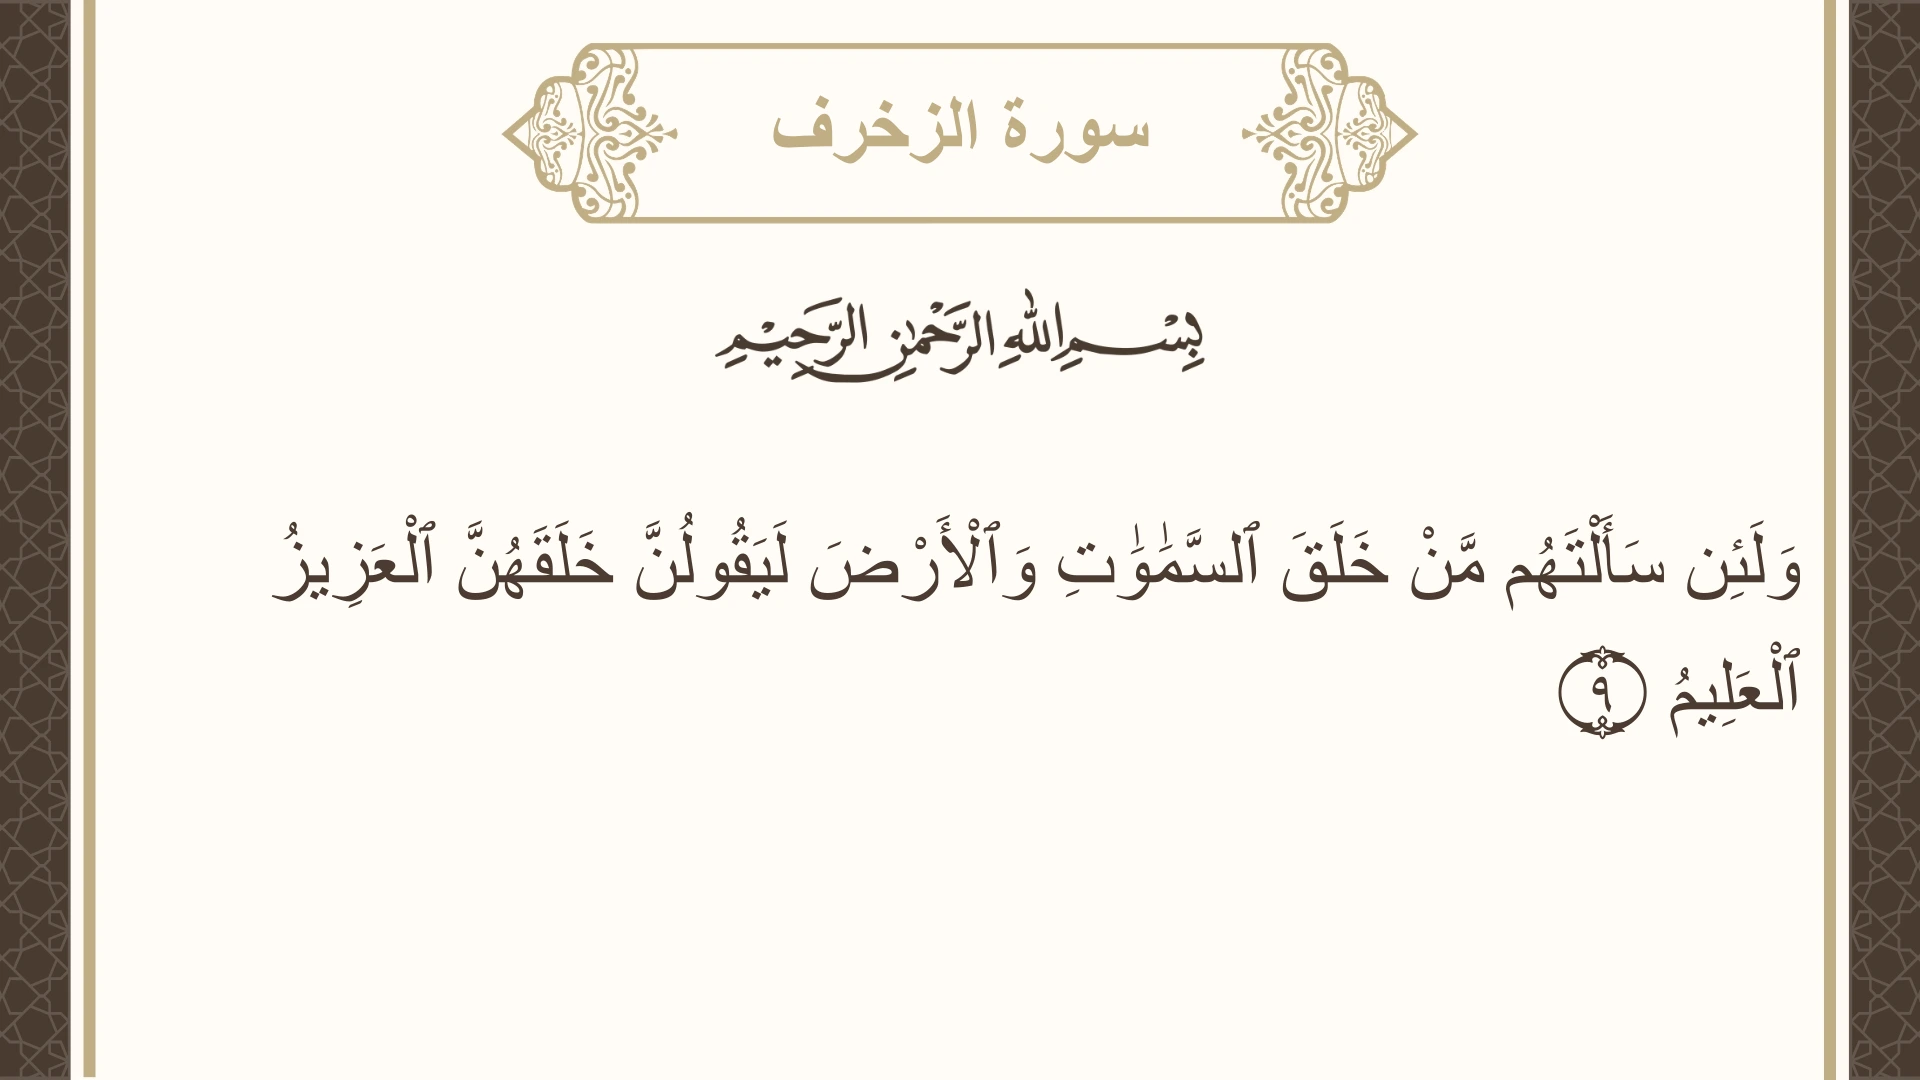 سورة الزخرف
بِسْمِ اللهِ الرَّحْمٰنِ الرَّحِيْمِ
وَلَئِن سَأَلْتَهُم مَّنْ خَلَقَ ٱلسَّمَٰوَٰتِ وَٱلْأَرْضَ لَيَقُولُنَّ خَلَقَهُنَّ ٱلْعَزِيزُ
ٱلْعَلِيمُ ٩